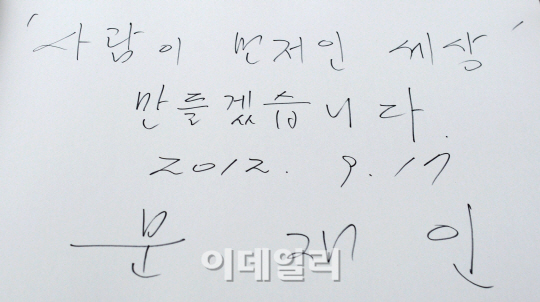 '사람이 먼저인 세상'
만들겠습니다.
2012. 9. 17
문 재 인
이데일리